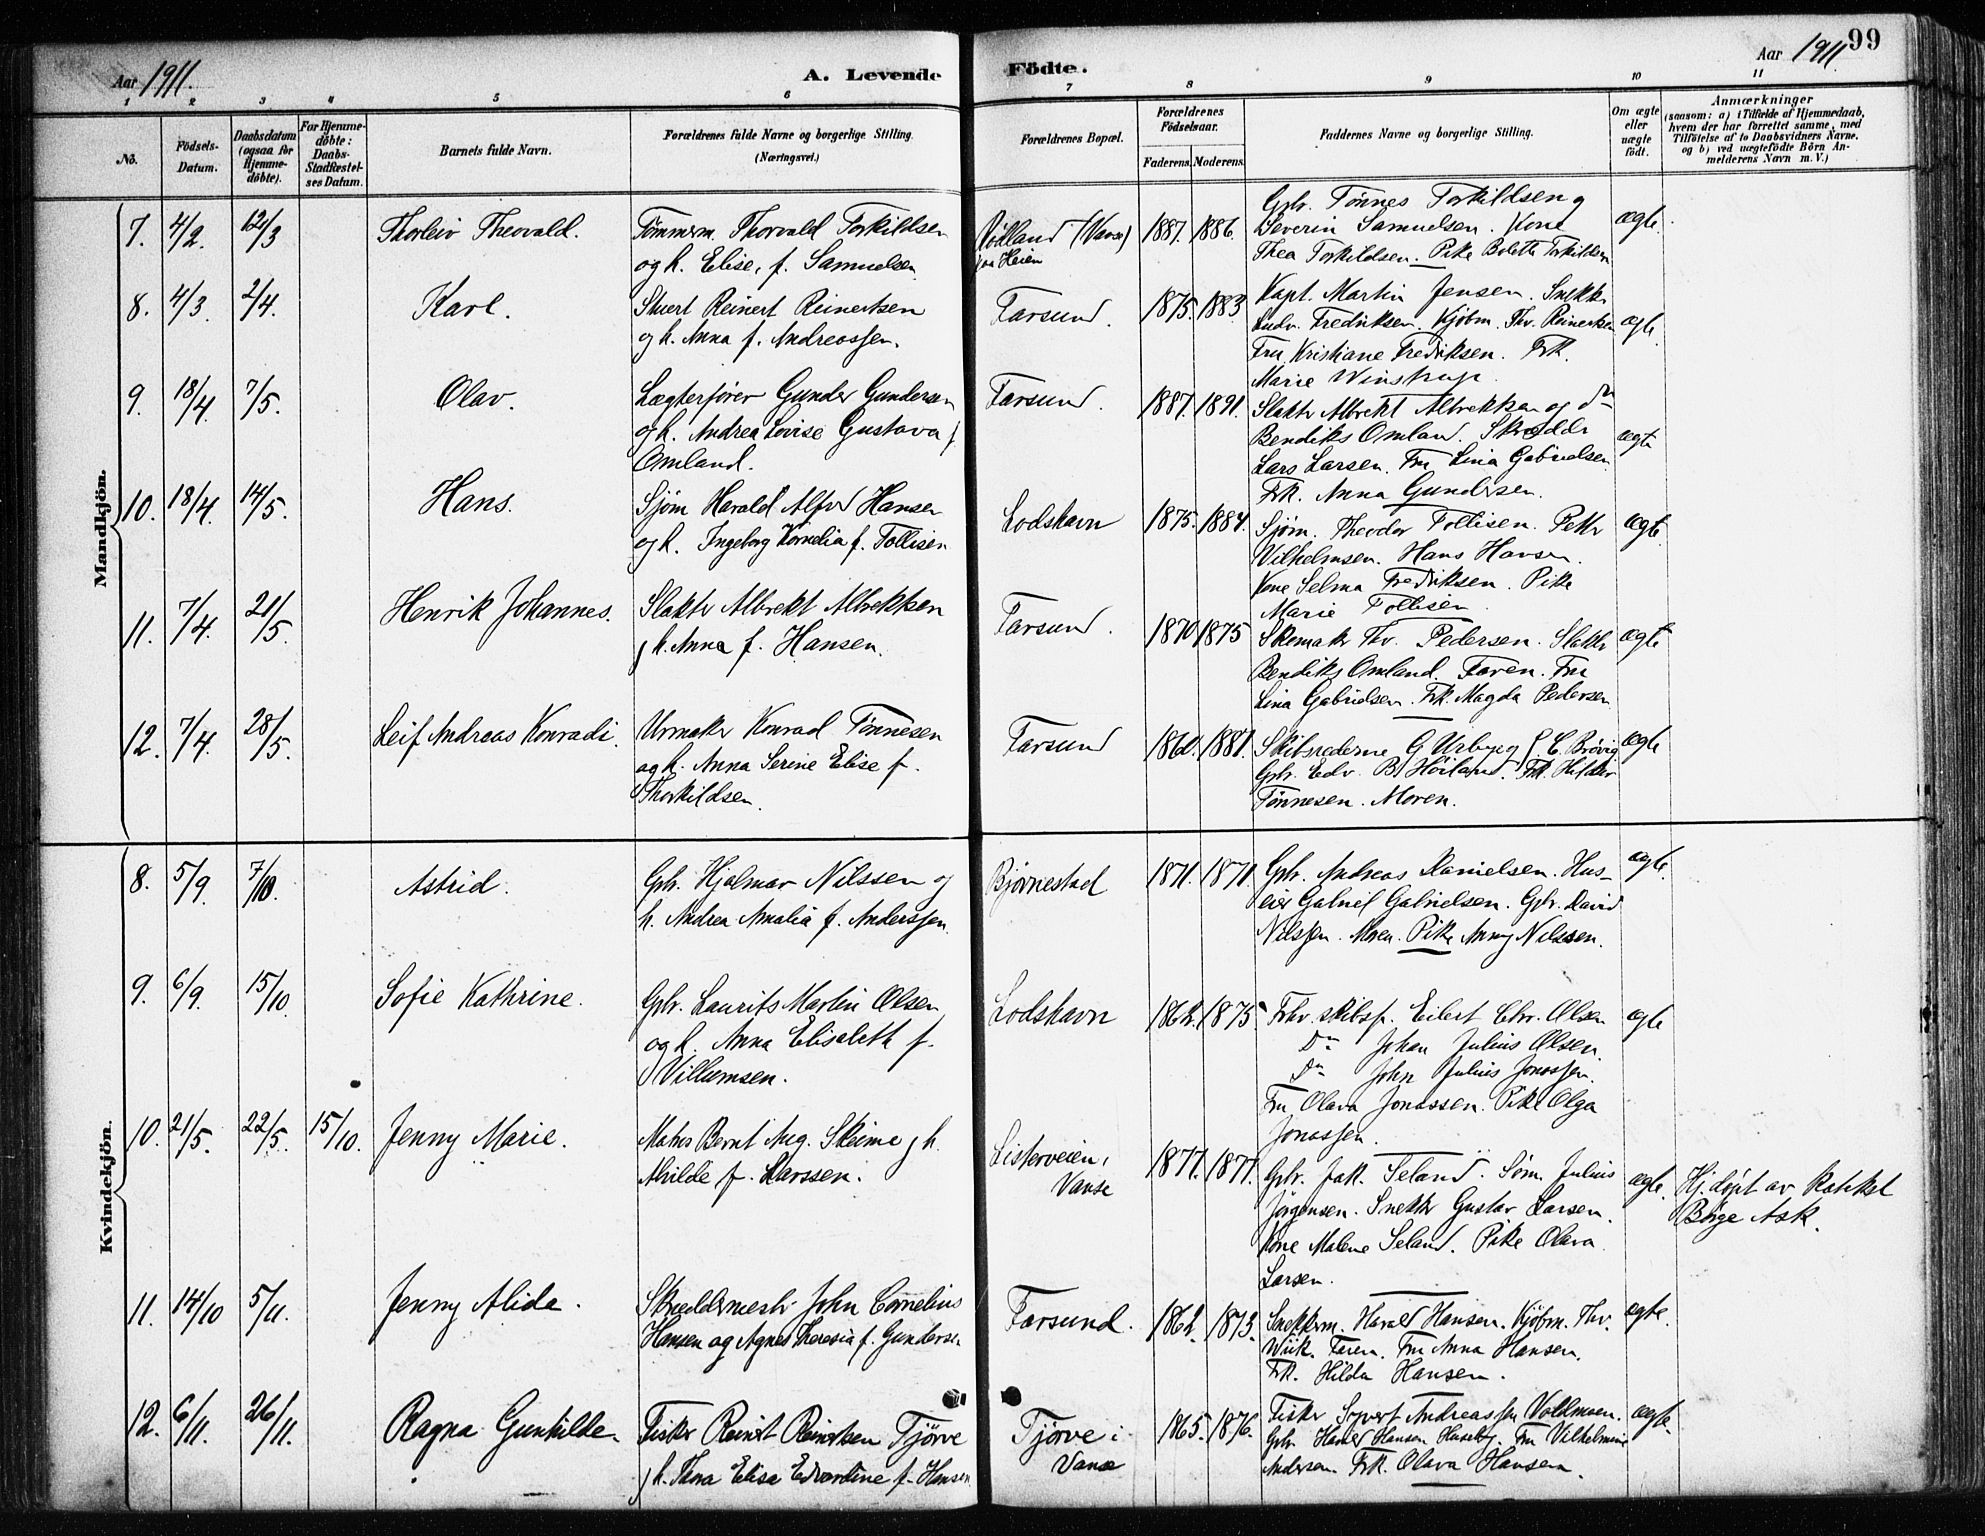 Aar 1911.
A. Levende Födte.
Aar 1911
99
1 2 3 4 5 6 7 8 9 10 11
No.
Födsels-Datum.
Daabsdatum (ogsaa for Hjemme-döbte).
For Hjemme-döbte: Daabs-Stadfæstel-ses Datum.
Barnets fulde Navn.
Forældrenes fulde Navne og borgerlige Stilling.
(Næringsvei.)
Forældrenes Bopæl.
Forældrenes Födselsaar.
Faderens. Moderens.
Faddernes Navne og borgerlige Stilling.
Om ægte eller uægte födt.
Anmærkninger
(saasom: a) i Tilfælde af Hjemmedaab, hvem der har forrettet samme, med Tilföielse af to Daabsvidners Navne. og b) ved uægtefödte Börn An-melderens Navn m. V.)
Mandkjön.
7. 4/2. 12/3 Thorleiv Theovald. Tømmerm. Thorvald Torkildsen
og h. Elise, f. Samuelsen
Rødland (Vanse)
paa Heien
1887. 1886.
Gbr. Tønnes Torkildsen og
Severin Samuelsen. Kone
Thea Torkildsen. Pike Bolette Torkildsen
ægte.
8. 4/3. 2/4. Karl. Stuert Reinert Reinertsen
og h. Anna f. Andreassen.
Farsund. 1875. 1883.
Kapt. Martin Jensen. Snekk
Ludv. Fredriksen. Kjøbm. Thv. Reinertsen
Fru Kristiane Fredriksen. Frk.
Marie Winstrup.
ægte
9. 18/4. 7/5. Olav. Lægterfører Gunder Gundersen
og h. Andrea Lovise Gustava f.
Omland.
Farsund. 1887. 1891.
Slakter Albrekt Albrektsen og do
Bendiks Omland. Skrædder
Lars Larsen. Fru Lina Gabrielsen
Frk. Anna Gundersen.
ægte
10. 18/4. 14/5. Hans. Sjøm Harald Alfred Hansen
og h. Ingeborg Kornelia f. Tollisen
Lodshavn 1875. 1884.
Sjøm. Theodor Tollisen. Peter
Vilhelmsen. Hans Hansen
Kone Selma Fredriksen. Pike
Marie Tollisen
ægte
11. 7/4. 21/5. Henrik Johannes. Slakter Albrekt Albrektsen
og h. Anna f. Hansen.
Farsund. 1870 1875
Skomaker Thv. Pedersen. Slakter
Bendiks Omland. Faren. Fru
Lina Gabrielsen. Frk. Magda Pedersen
ægte
12. 7/4. 28/5. Leif Andreas Konradi. Urmaker Konrad Tønnesen
og h. Anna Serine Elise f.
Thorkildsen.
Farsund 1881.
Skibsrederne G Urbye og C. Brøvig
Gbr. Edv. B. Høiland. Frk. Hilda
Tønnesen. Moren.
ægte
Kvindekjön.
8. 5/9. 7/10. Astrid. Gbr. Hjalmar Nilssen og
h. Andrea Amalia f. Anderssen.
Bjørnestad 1871. 1871.
Gbr. Andreas Danielsen. Hus-
eier Gabriel Gabrielsen. Gbr. David
Nilssen. Moren. Pike Anny Nilssen.
ægte.
9. 6/9. 15/10. Sofie Kathrine. Gbr. Laurits Martin Olsen
og h. Anna Elisabeth f.
Villumsen.
Lodshavn 1875
Fhv. skibsf. Eilert Chr. Olsen
Do Johan Julius Olsen.
Do John Julius Jonassen.
Fru Olava Jonassen. Pike Olga
Jonassen.
ægte
10. 21/5. 22/5. 15/10. Jenny Marie. Matros Bernt Aug. Skeime og h.
Alvilde f. Larssen.
Listerveien,
Vanse
1877. 1877.
Gbr. Jak. Seland. Søm. Julius
Jørgensen. Snekker Gustav Larsen.
Kone Malene Seland. Pike Olava
Larsen.
ægte.
Hj. døpt av Rakkel
Børge Ask.
11. 14/10 5/11. Jenny Alida. Skreddermestr John Cornelius
Hansen og Agnes Theresia f. Gundersen
Farsund. 1873.
Snekkerm. Harald Hansen. Kjøbm. Thv.
Wiik. Faren. Fru Anna Hansen.
Frk. Hilda Hansen.
ægte.
12. 6/11. 26/11. Ragna Gunhilde. Fisker Reinert Reinertsen Tjørve
og h. Thea Elisa Edvardine f. Hansen
Tjørve i
Vanse
1865. 1876.
Fisker Sigvert Andreassen Voldmoen.
Gbr. Hans Hansen Huseby. Fru Vilhelmine
Andersen. Frk. Olava Hansen.
ægte.